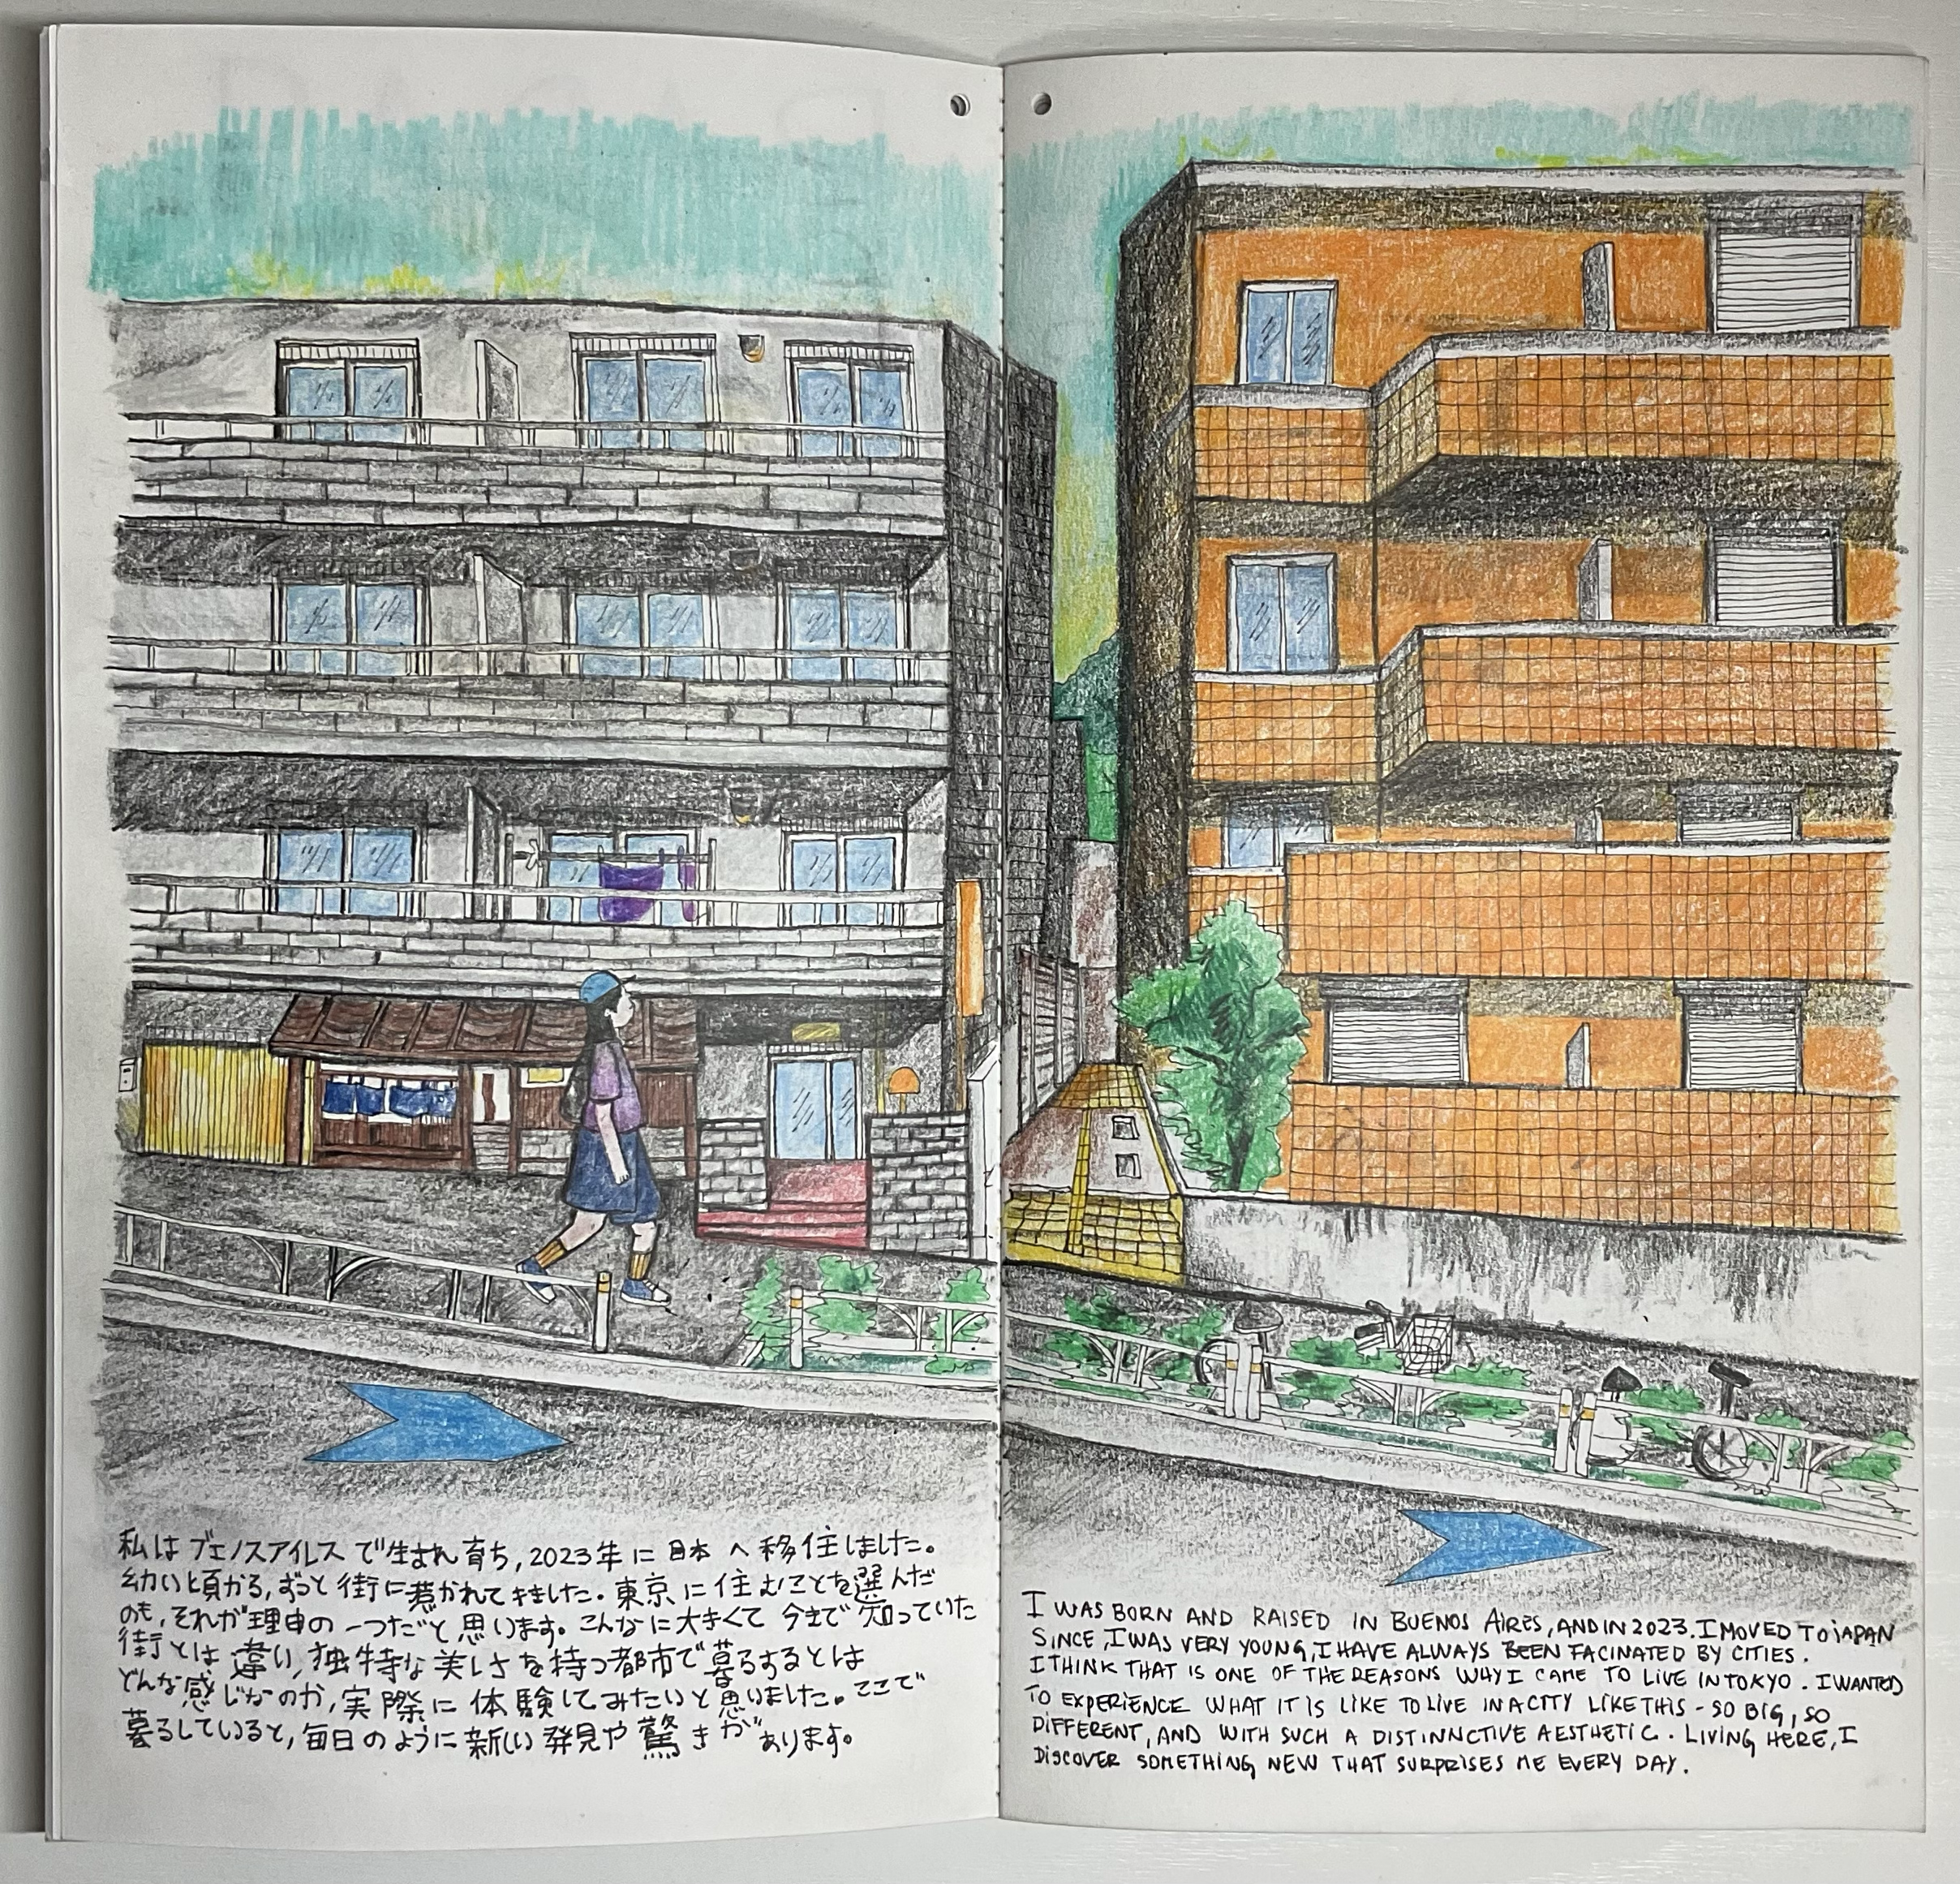 私はブエノスアイレスで生まれ育ち,2023年に日本へ移住しました。
幼い頃かる,ずっと街に惹かれてきました。東京に住むことを選んだ
のも,それが理由の一つだと思います。こんなに大きくて今まで知っていた
街とは違い,独特な美しさを持つ都市で暮るするとは
どんな感じなのか,実際に体験してみたいと思いました。ここで
暮るしていると,毎日のように新しい発見や驚きがあります。
I WAS BORN AND RAISED IN BUENOS AIRES, AND IN 2023. I MOVED TO JAPAN
SINCE, I WAS VERY YOUNG, I HAVE ALWAYS BEEN FACINATED BY CITIES.
I THINK THAT IS ONE OF THE REASONS WHY I CAME TO LIVE IN TOKYO. I WANTED
TO EXPERIENCE WHAT IT IS LIKE TO LIVE IN A CITY LIKE THIS - SO BIG, SO
DIFFERENT, AND WITH SUCH A DISTINNCTIVE AESTHETIC. LIVING HERE, I
DISCOVER SOMETHING NEW THAT SURPRISES ME EVERY DAY.